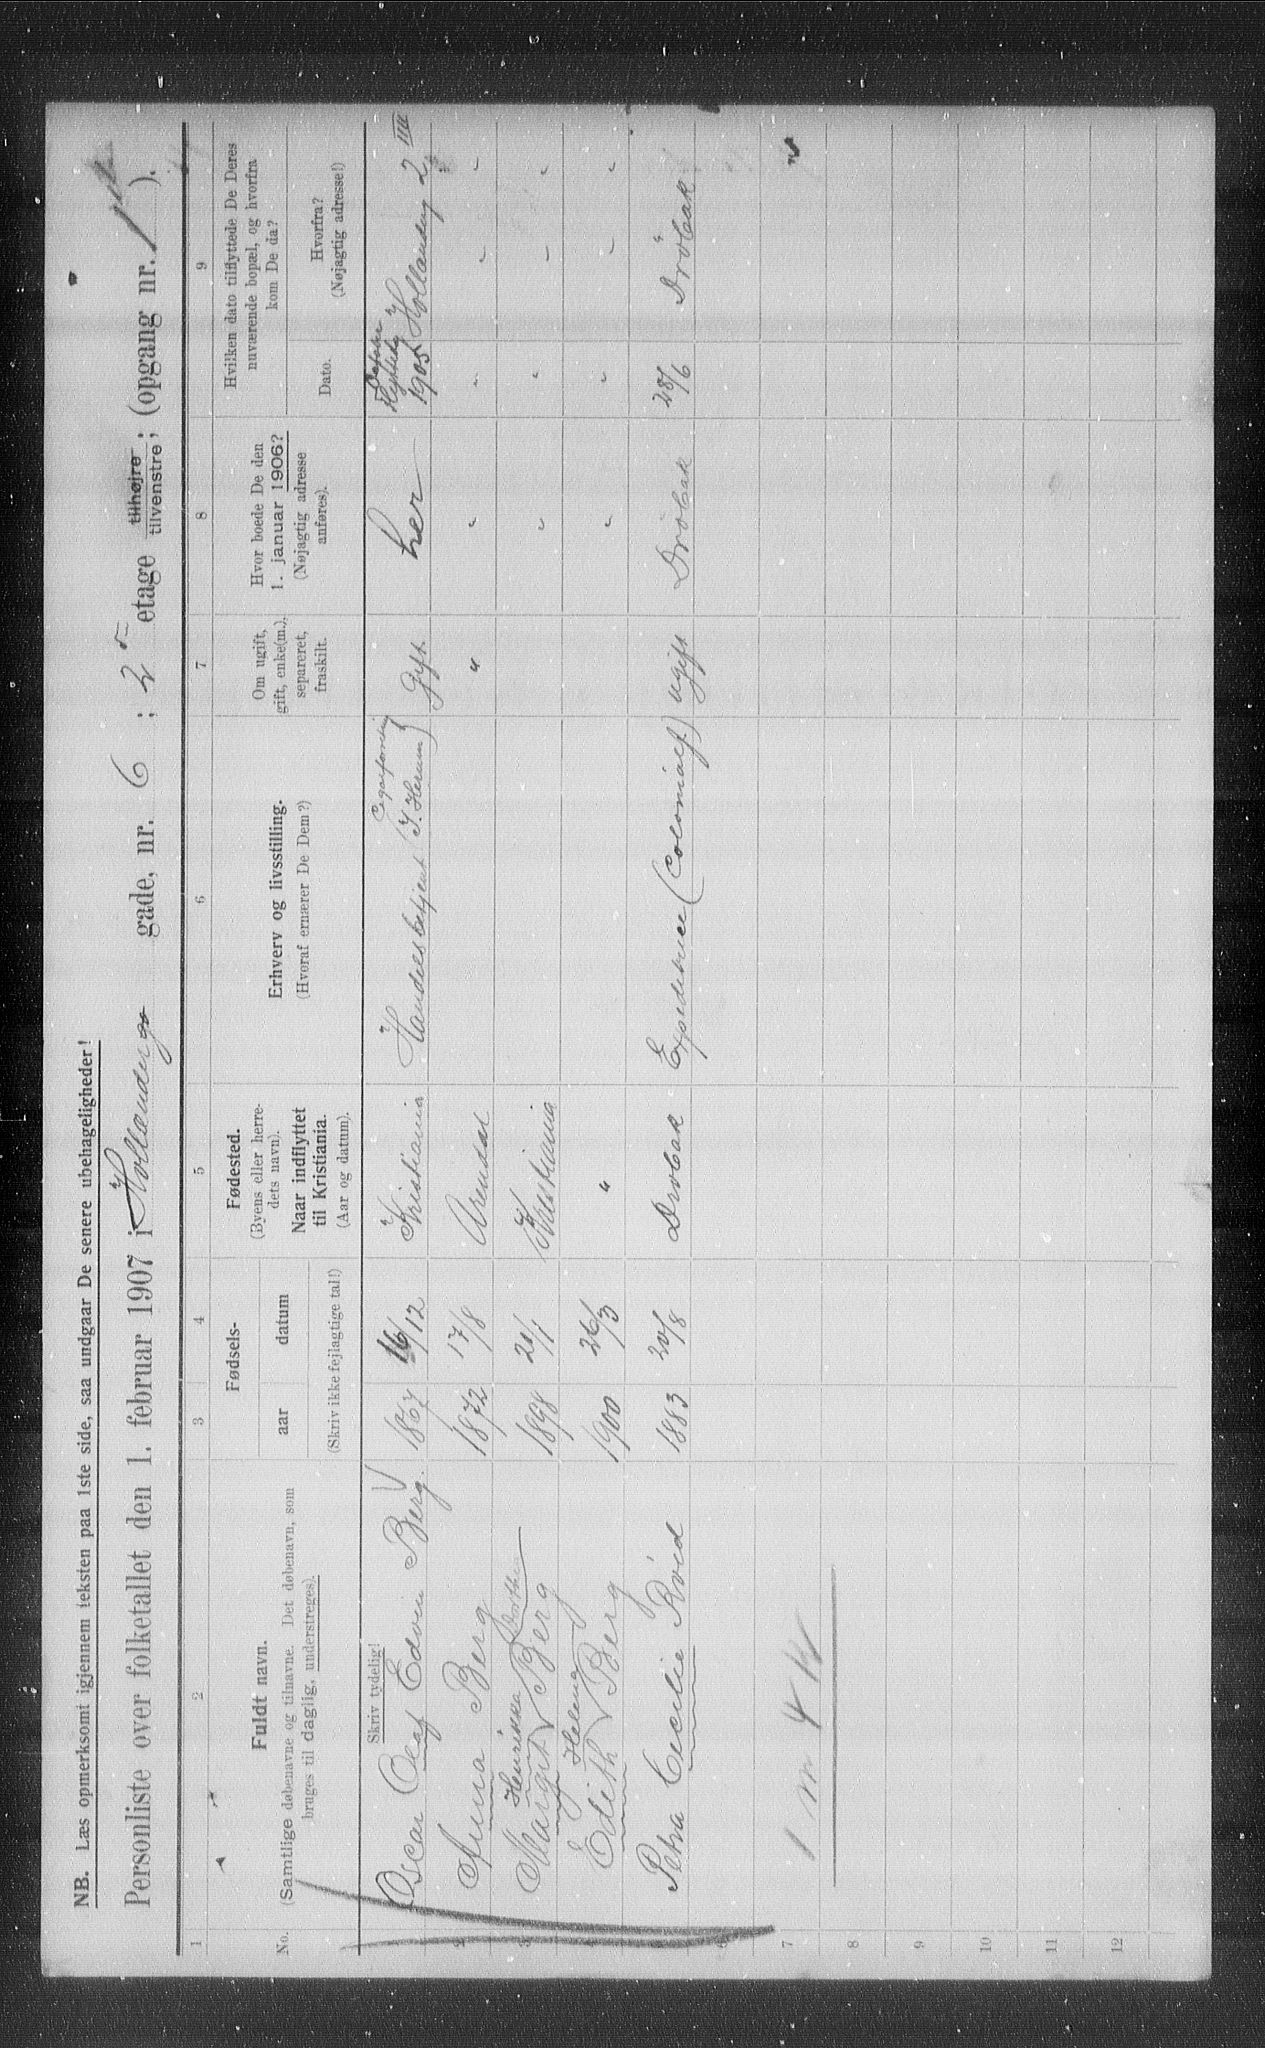 NB. Læs opmerksomt igjennem teksten paa 1ste side, saa undgaar De senere ubehageligheder!
Personliste over folketallet den 1. februar 1907 i Hollænderga gade, nr. 6 ; 2 etage tilhøjre tilvenstre; (opgang nr. 1 ).
1 2 3 4 5 6 7 8 9
No.
Fuldt navn.
(Samtlige døbenavne og tilnavne. Det døbenavn, som
bruges til daglig, understreges).
Fødsels-
aar datum
(Skriv ikke fejlagtige tal!)
Fødested.
(Byens eller herre-
dets navn).
Naar indflyttet
til Kristiania.
(Aar og datum).
Erhverv og livsstilling.
(Hvoraf ernærer De Dem?)
Om ugift,
gift, enke(m.),
separeret,
fraskilt.
Hvor boede De den
1. januar 1906?
(Nøjagtig adresse
anføres).
Hvilken dato tilflyttede De Deres
nuværende bopæl, og hvorfra
kom De da?
Dato.
Hvorfra?
(Nøjagtig adresse!)
Skriv tydelig!
Oscar Olaf Edvin Berg. 1867 16/12 Kristiania Handelsbetjent (J. Herum) Gift. her 1905 Hollænderg 2 IIII
2 Anna Berg 1872 17/8 Arendal " " " " "
Henrikka
3 Margit Berg 1898 20/1 Kristiania " " " "
Helene
4 Edith Berg 1900 26/3 " " " " "
Petra Cecilie Röed 1883 20/8 Drøbak Expeditrice (Colonialf) ugift Drøbak 28/6 Drøbak
6
7
1 m 4 k
8
9
10
11
12